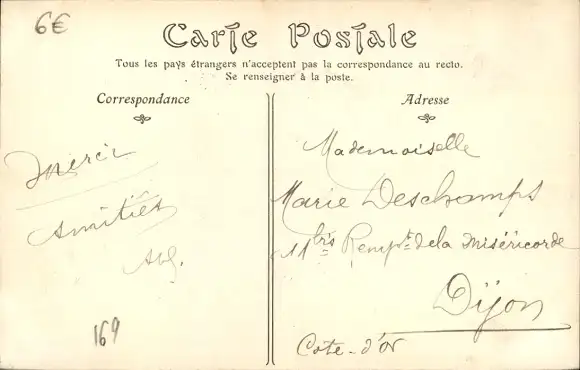 6€
Carte Postale
Tous les pays étrangers n'acceptent pas la correspondance au recto.
Se renseigner à la poste.
Correspondance
Adresse
Merci
Amitiés
169
Mademoiselle
Marie Deschamps
11 bis Rempt de la Miséricorde
Dijon
Cote-d'or